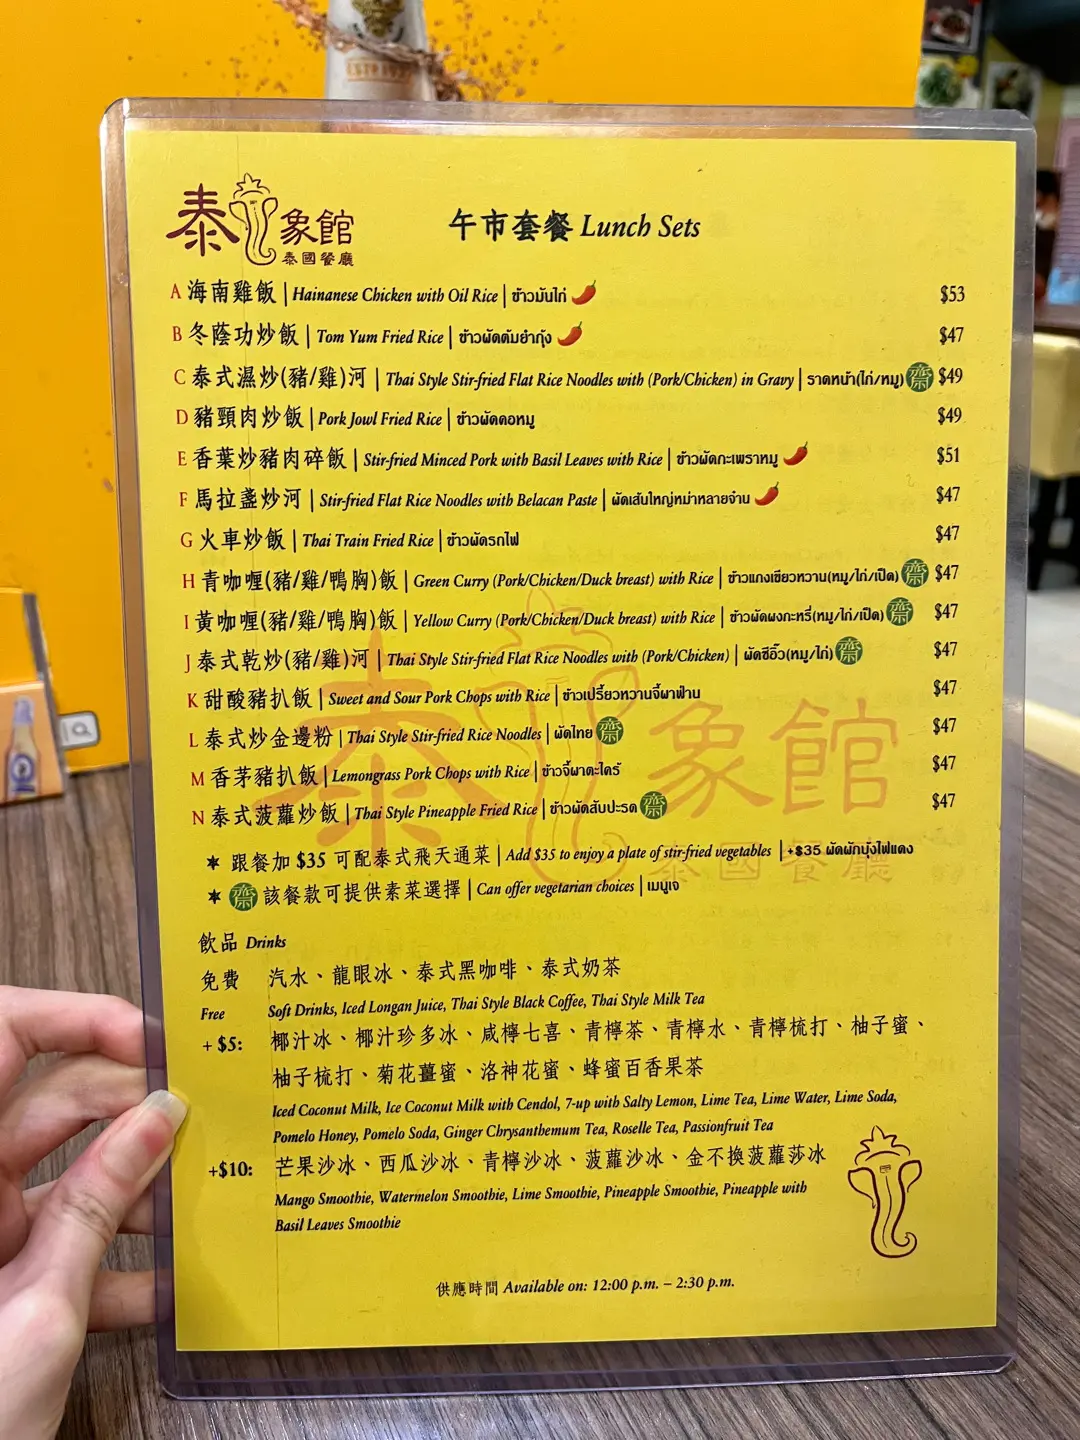 泰象館
泰國餐廳
午市套餐 Lunch Sets
A 海南雞飯 | Hainanese Chicken with Oil Rice | ข้าวมันไก่ $53
B 冬蔭功炒飯 | Tom Yum Fried Rice | ข้าวผัดต้มยำกุ้ง $47
C 泰式濕炒(豬/雞)河 | Thai Style Stir-fried Flat Rice Noodles with (Pork/Chicken) in Gravy | ราดหน้า(ไก่/หมู) 齋 $49
D 豬頸肉炒飯 | Pork Jowl Fried Rice | ข้าวผัดคอหมู $49
E 香葉炒豬肉碎飯 | Stir-fried Minced Pork with Basil Leaves with Rice | ข้าวผัดกะเพราหมู $51
F 馬拉盞炒河 | Stir-fried Flat Rice Noodles with Belacan Paste | ผัดเส้นใหญ่หม่าหลายจ้าน $47
G 火車炒飯 | Thai Train Fried Rice | ข้าวผัดรถไฟ $47
H 青咖喱(豬/雞/鴨胸)飯 | Green Curry (Pork/Chicken/Duck breast) with Rice | ข้าวแกงเขียวหวาน(หมู/ไก่/เป็ด) 齋 $47
I 黃咖喱(豬/雞/鴨胸)飯 | Yellow Curry (Pork/Chicken/Duck breast) with Rice | ข้าวผัดผงกะหรี่(หมู/ไก่/เป็ด) 齋 $47
J 泰式乾炒(豬/雞)河 | Thai Style Stir-fried Flat Rice Noodles with (Pork/Chicken) | ผัดซีอิ๊ว(หมู/ไก่) 齋 $47
K 甜酸豬扒飯 | Sweet and Sour Pork Chops with Rice | ข้าวเปรี้ยวหวานจี้ผาฟ่าน $47
L 泰式炒金邊粉 | Thai Style Stir-fried Rice Noodles | ผัดไทย 齋 $47
M 香茅豬扒飯 | Lemongrass Pork Chops with Rice | ข้าวจี้ผาตะไคร้ $47
N 泰式菠蘿炒飯 | Thai Style Pineapple Fried Rice | ข้าวผัดสับปะรด 齋 $47
泰象館
泰國餐廳
✶ 跟餐加 $35 可配泰式飛天通菜 | Add $35 to enjoy a plate of stir-fried vegetables | +$35 ผัดผักบุ้งไฟแดง
✶ 齋 該餐款可提供素菜選擇 | Can offer vegetarian choices | เมนูเจ
飲品 Drinks
免費 汽水、龍眼冰、泰式黑咖啡、泰式奶茶
Free Soft Drinks, Iced Longan Juice, Thai Style Black Coffee, Thai Style Milk Tea
+ $5: 椰汁冰、椰汁珍多冰、咸檸七喜、青檸茶、青檸水、青檸梳打、柚子蜜、
柚子梳打、菊花薑蜜、洛神花蜜、蜂蜜百香果茶
Iced Coconut Milk, Ice Coconut Milk with Cendol, 7-up with Salty Lemon, Lime Tea, Lime Water, Lime Soda,
Pomelo Honey, Pomelo Soda, Ginger Chrysanthemum Tea, Roselle Tea, Passionfruit Tea
+$10: 芒果沙冰、西瓜沙冰、青檸沙冰、菠蘿沙冰、金不換菠蘿莎冰
Mango Smoothie, Watermelon Smoothie, Lime Smoothie, Pineapple Smoothie, Pineapple with
Basil Leaves Smoothie
供應時間 Available on: 12:00 p.m. – 2:30 p.m.